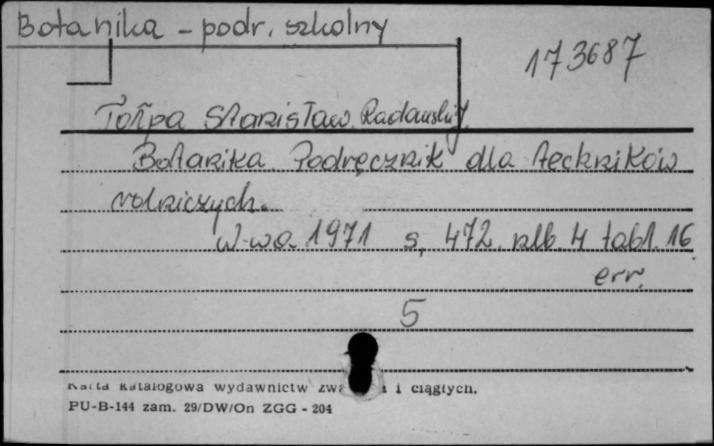 Botanika - podr. szkolny
173687
Tołpa Stanisław. Radomski J.
Botanika. Podręcznik dla techników
rolniczych.
W-wa 1971 s. 472. nlb. 4 tabl. 16
err.
5
Karta katalogowa wydawnictw i ciągłych.
PU-B-144 zam. 29/DW/On ZGG - 204